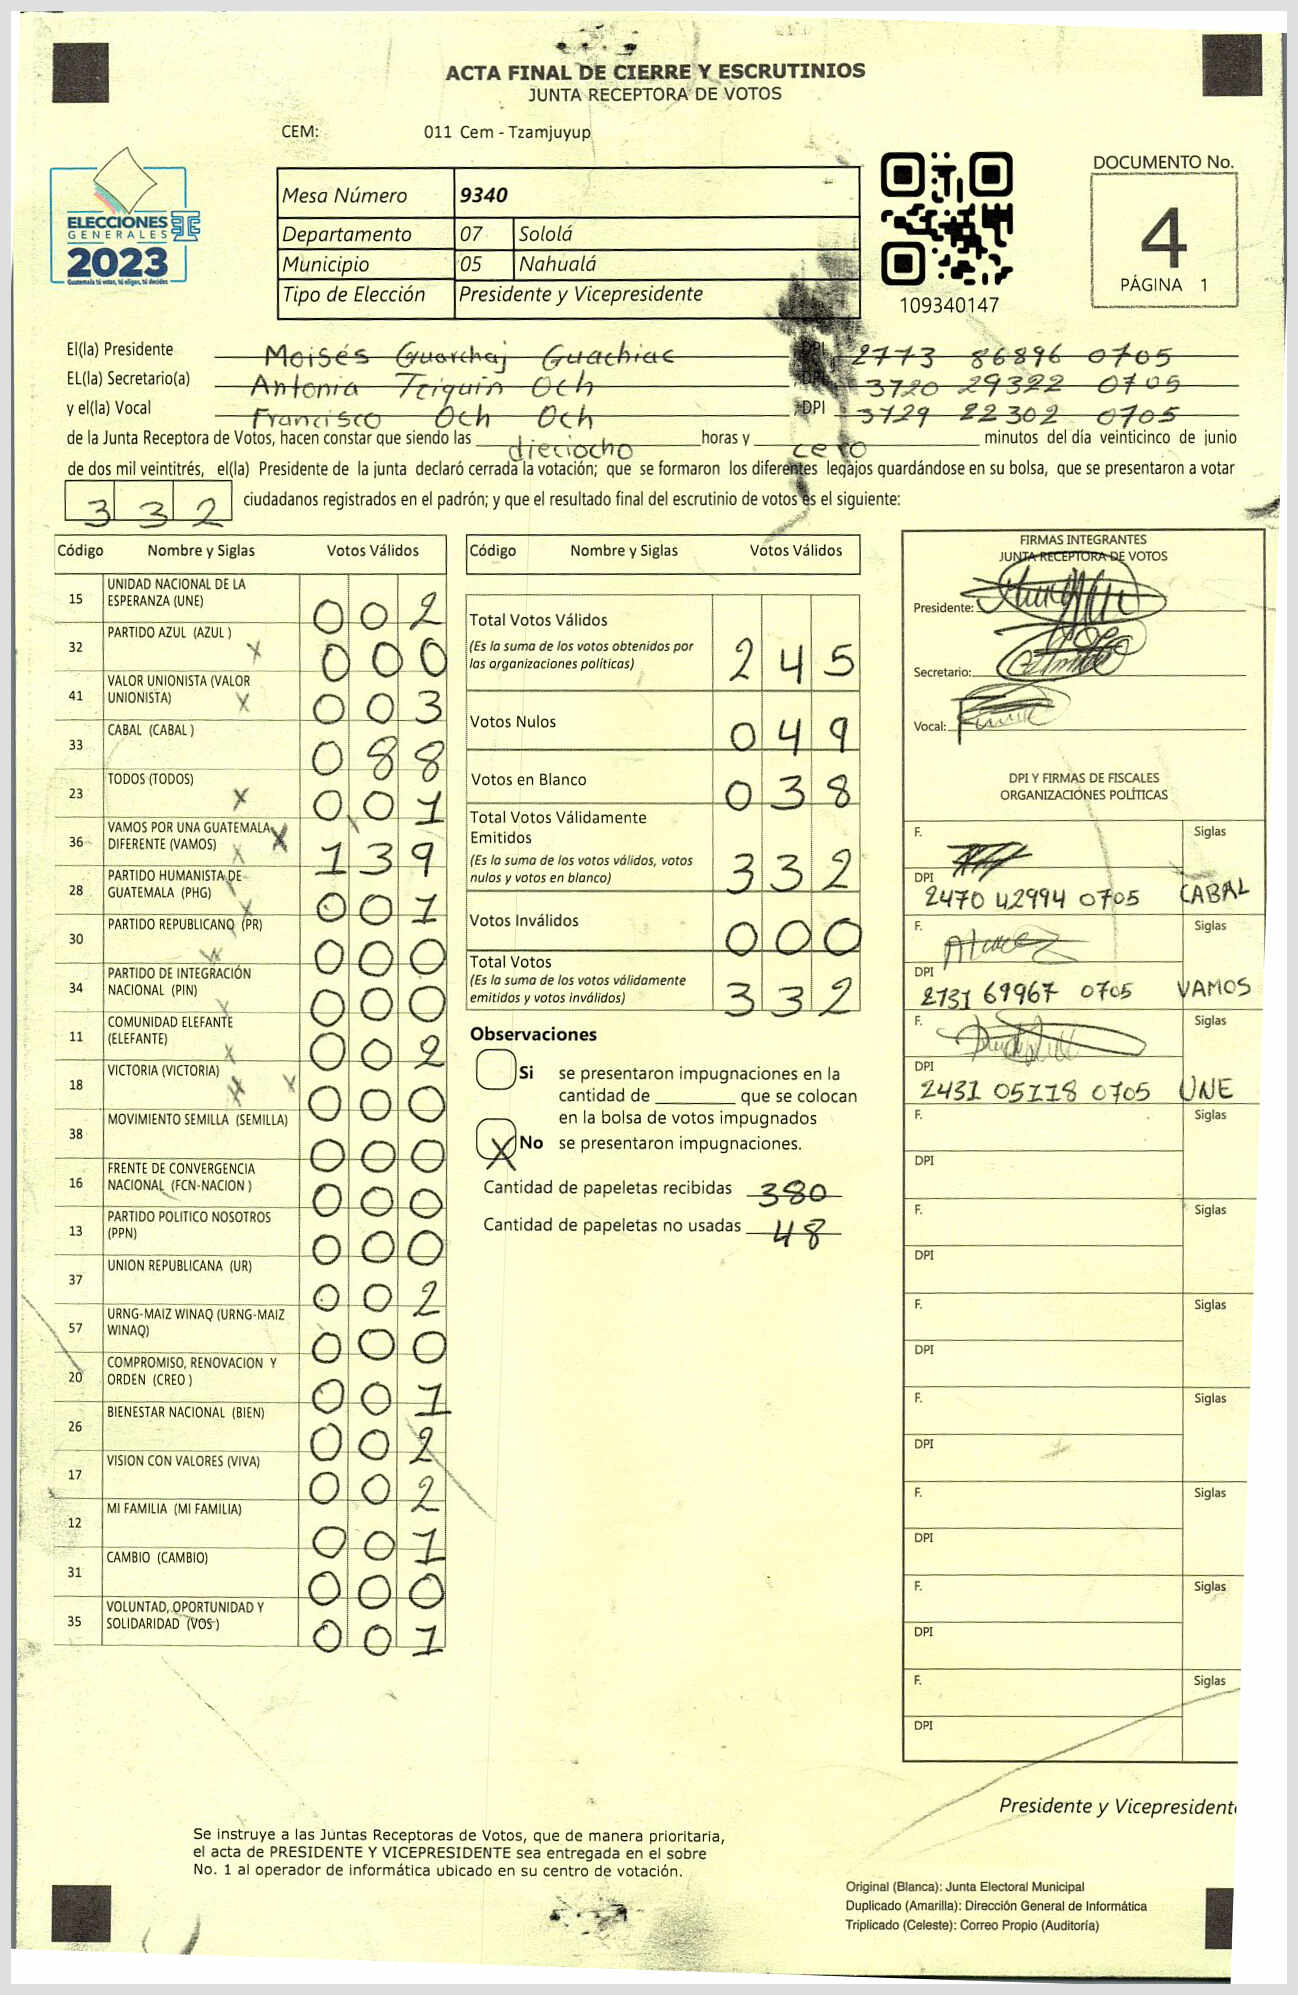 ACTA FINAL DE CIERRE Y ESCRUTINIOS
JUNTA RECEPTORA DE VOTOS
CEM: 011 Cem - Tzamjuyup
ELECCIONES
GENERALES
2023
Guatemala tú votas, tú eliges, tú decides
Mesa Número 9340
Departamento 07 Sololá
Municipio 05 Nahualá
Tipo de Elección Presidente y Vicepresidente
109340147
DOCUMENTO No.
4
PÁGINA 1
El(la) Presidente Moisés Guarchaj Guachiac DPI 2773 86896 0705
EL(la) Secretario(a) Antonia Tziquin Och DPI 3720 29322 0705
y el(la) Vocal Francisco Och Och , DPI 3729 22302 0705
de la Junta Receptora de Votos, hacen constar que siendo las dieciocho horas y cero minutos del día veinticinco de junio
de dos mil veintitrés, el(la) Presidente de la junta declaró cerrada la votación; que se formaron los diferentes legajos guardándose en su bolsa, que se presentaron a votar
332 ciudadanos registrados en el padrón; y que el resultado final del escrutinio de votos es el siguiente:
Código Nombre y Siglas Votos Válidos
15 UNIDAD NACIONAL DE LA ESPERANZA (UNE) 002
32 PARTIDO AZUL (AZUL ) X 000
41 VALOR UNIONISTA (VALOR UNIONISTA) X 003
33 CABAL (CABAL ) 088
23 TODOS (TODOS) X 001
36 VAMOS POR UNA GUATEMALA DIFERENTE (VAMOS) X 139
28 PARTIDO HUMANISTA DE GUATEMALA (PHG) 001
30 PARTIDO REPUBLICANO (PR) 000
34 PARTIDO DE INTEGRACIÓN NACIONAL (PIN) 000
11 COMUNIDAD ELEFANTE (ELEFANTE) 002
18 VICTORIA (VICTORIA) 000
38 MOVIMIENTO SEMILLA (SEMILLA) 000
16 FRENTE DE CONVERGENCIA NACIONAL (FCN-NACION ) 000
13 PARTIDO POLITICO NOSOTROS (PPN) 000
37 UNION REPUBLICANA (UR) 002
57 URNG-MAIZ WINAQ (URNG-MAIZ WINAQ) 000
20 COMPROMISO, RENOVACION Y ORDEN (CREO ) 001
26 BIENESTAR NACIONAL (BIEN) 002
17 VISION CON VALORES (VIVA) 002
12 MI FAMILIA (MI FAMILIA) 001
31 CAMBIO (CAMBIO) 000
35 VOLUNTAD, OPORTUNIDAD Y SOLIDARIDAD (VOS ) 001
Código Nombre y Siglas Votos Válidos
Total Votos Válidos
(Es la suma de los votos obtenidos por
las organizaciones políticas) 245
Votos Nulos 049
Votos en Blanco 038
Total Votos Válidamente
Emitidos
(Es la suma de los votos válidos, votos
nulos y votos en blanco) 332
Votos Inválidos 000
Total Votos
(Es la suma de los votos válidamente
emitidos y votos inválidos) 332
Observaciones
Si se presentaron impugnaciones en la
cantidad de ________ que se colocan
en la bolsa de votos impugnados
X No se presentaron impugnaciones.
Cantidad de papeletas recibidas 380
Cantidad de papeletas no usadas 48
FIRMAS INTEGRANTES
JUNTA RECEPTORA DE VOTOS
Presidente:
Secretario:
Vocal:
DPI Y FIRMAS DE FISCALES
ORGANIZACIONES POLÍTICAS
F. Siglas
DPI 2470 42994 0705 CABAL
F. Siglas
DPI 2731 69967 0705 VAMOS
F. Siglas
DPI 2431 05118 0705 UNE
F. Siglas
DPI
F. Siglas
DPI
F. Siglas
DPI
F. Siglas
DPI
F. Siglas
DPI
F. Siglas
DPI
F. Siglas
DPI
Presidente y Vicepresident
Se instruye a las Juntas Receptoras de Votos, que de manera prioritaria,
el acta de PRESIDENTE Y VICEPRESIDENTE sea entregada en el sobre
No. 1 al operador de informática ubicado en su centro de votación.
Original (Blanca): Junta Electoral Municipal
Duplicado (Amarilla): Dirección General de Informática
Triplicado (Celeste): Correo Propio (Auditoría)